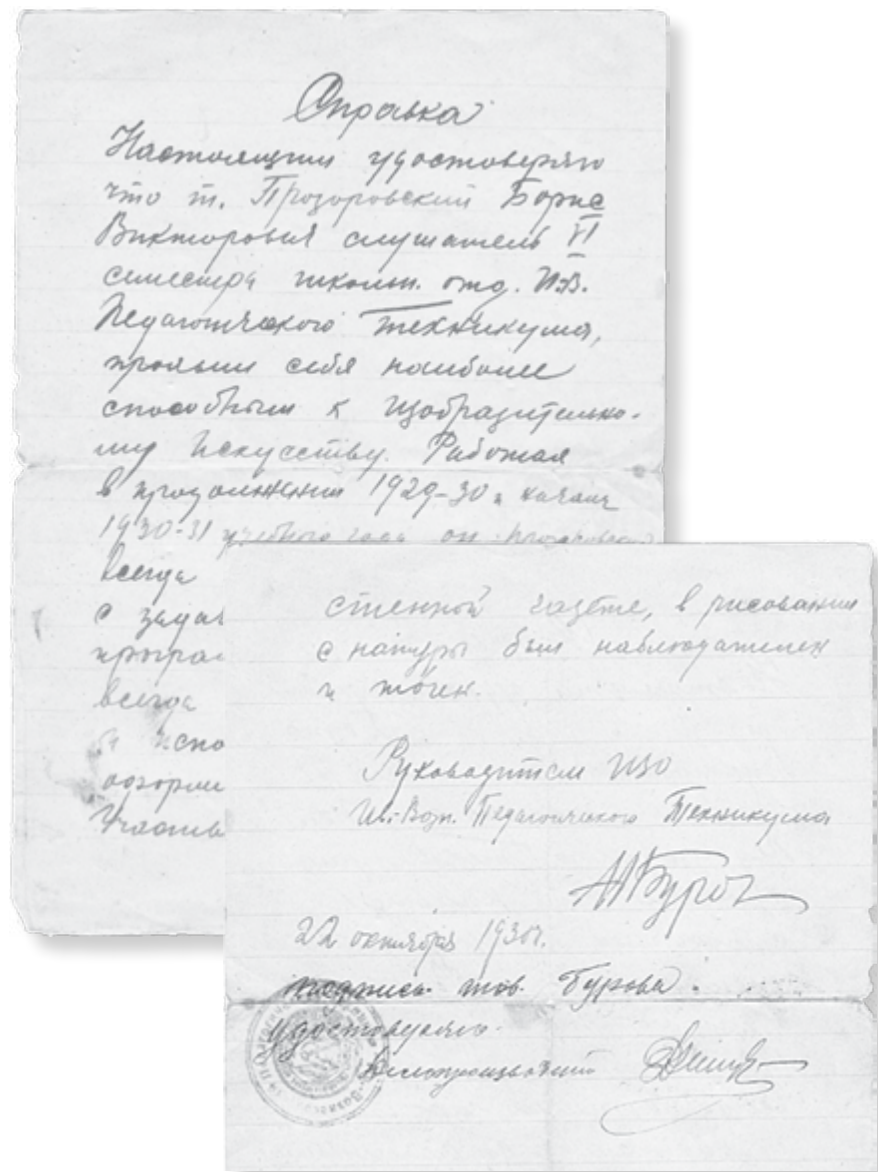 Справка
Настоящим удостоверяю
что т. Прозоровский Борис
Викторович слушатель VI
семестра школьн. отд. И.В.
Педагогического Техникума,
проявил себя наиболее
способным к изобразительно-
му искусству. Работая
в продолжении 1929-30 и начале
1930-31 учебного года он Прозоровский
всегда
с зада
програ
всегда
и испо
оформ
Участв
стенной газете, в рисовании
с натуры был наблюдателен
и точен.
Руководитель ИЗО
Ив.-Возн. Педагогического Техникума
Буров
22 октября 1930г.
подпись тов. Бурова
удостоверяю